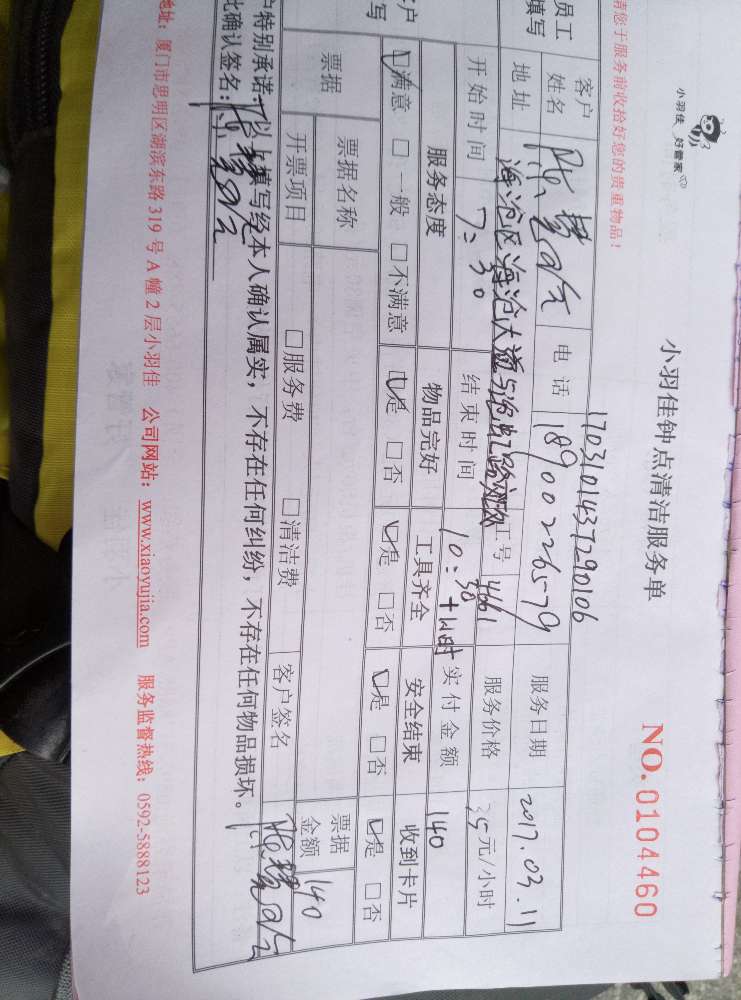 小羽佳 好管家
小羽佳钟点清洁服务单
NO.0104460
请您于服务前收拾好您的贵重物品!
1703101437290106
员工填写
客户姓名 电话 18900226579 服务日期 2017.03.11
地址 海沧区海沧大道与沧虹路 工号 4061 服务价格 35元/小时
开始时间 7:30 结束时间 10:30 +1小时 实付金额 140
客户填写
服务态度 物品完好 工具齐全 安全结束 收到卡片
☑满意 □一般 □不满意 ☑是 □否 ☑是 □否 ☑是 □否 ☑是 □否
票据 票据名称 票据金额 140
开票项目 □服务费 □清洁费 客户签名
户特别承诺:以上填写经本人确认属实,不存在任何纠纷,不存在任何物品损坏。
此确认签名:
地址:厦门市思明区湖滨东路319号A幢2层小羽佳 公司网站:www.xiaoyujia.com 服务监督热线:0592-5888123